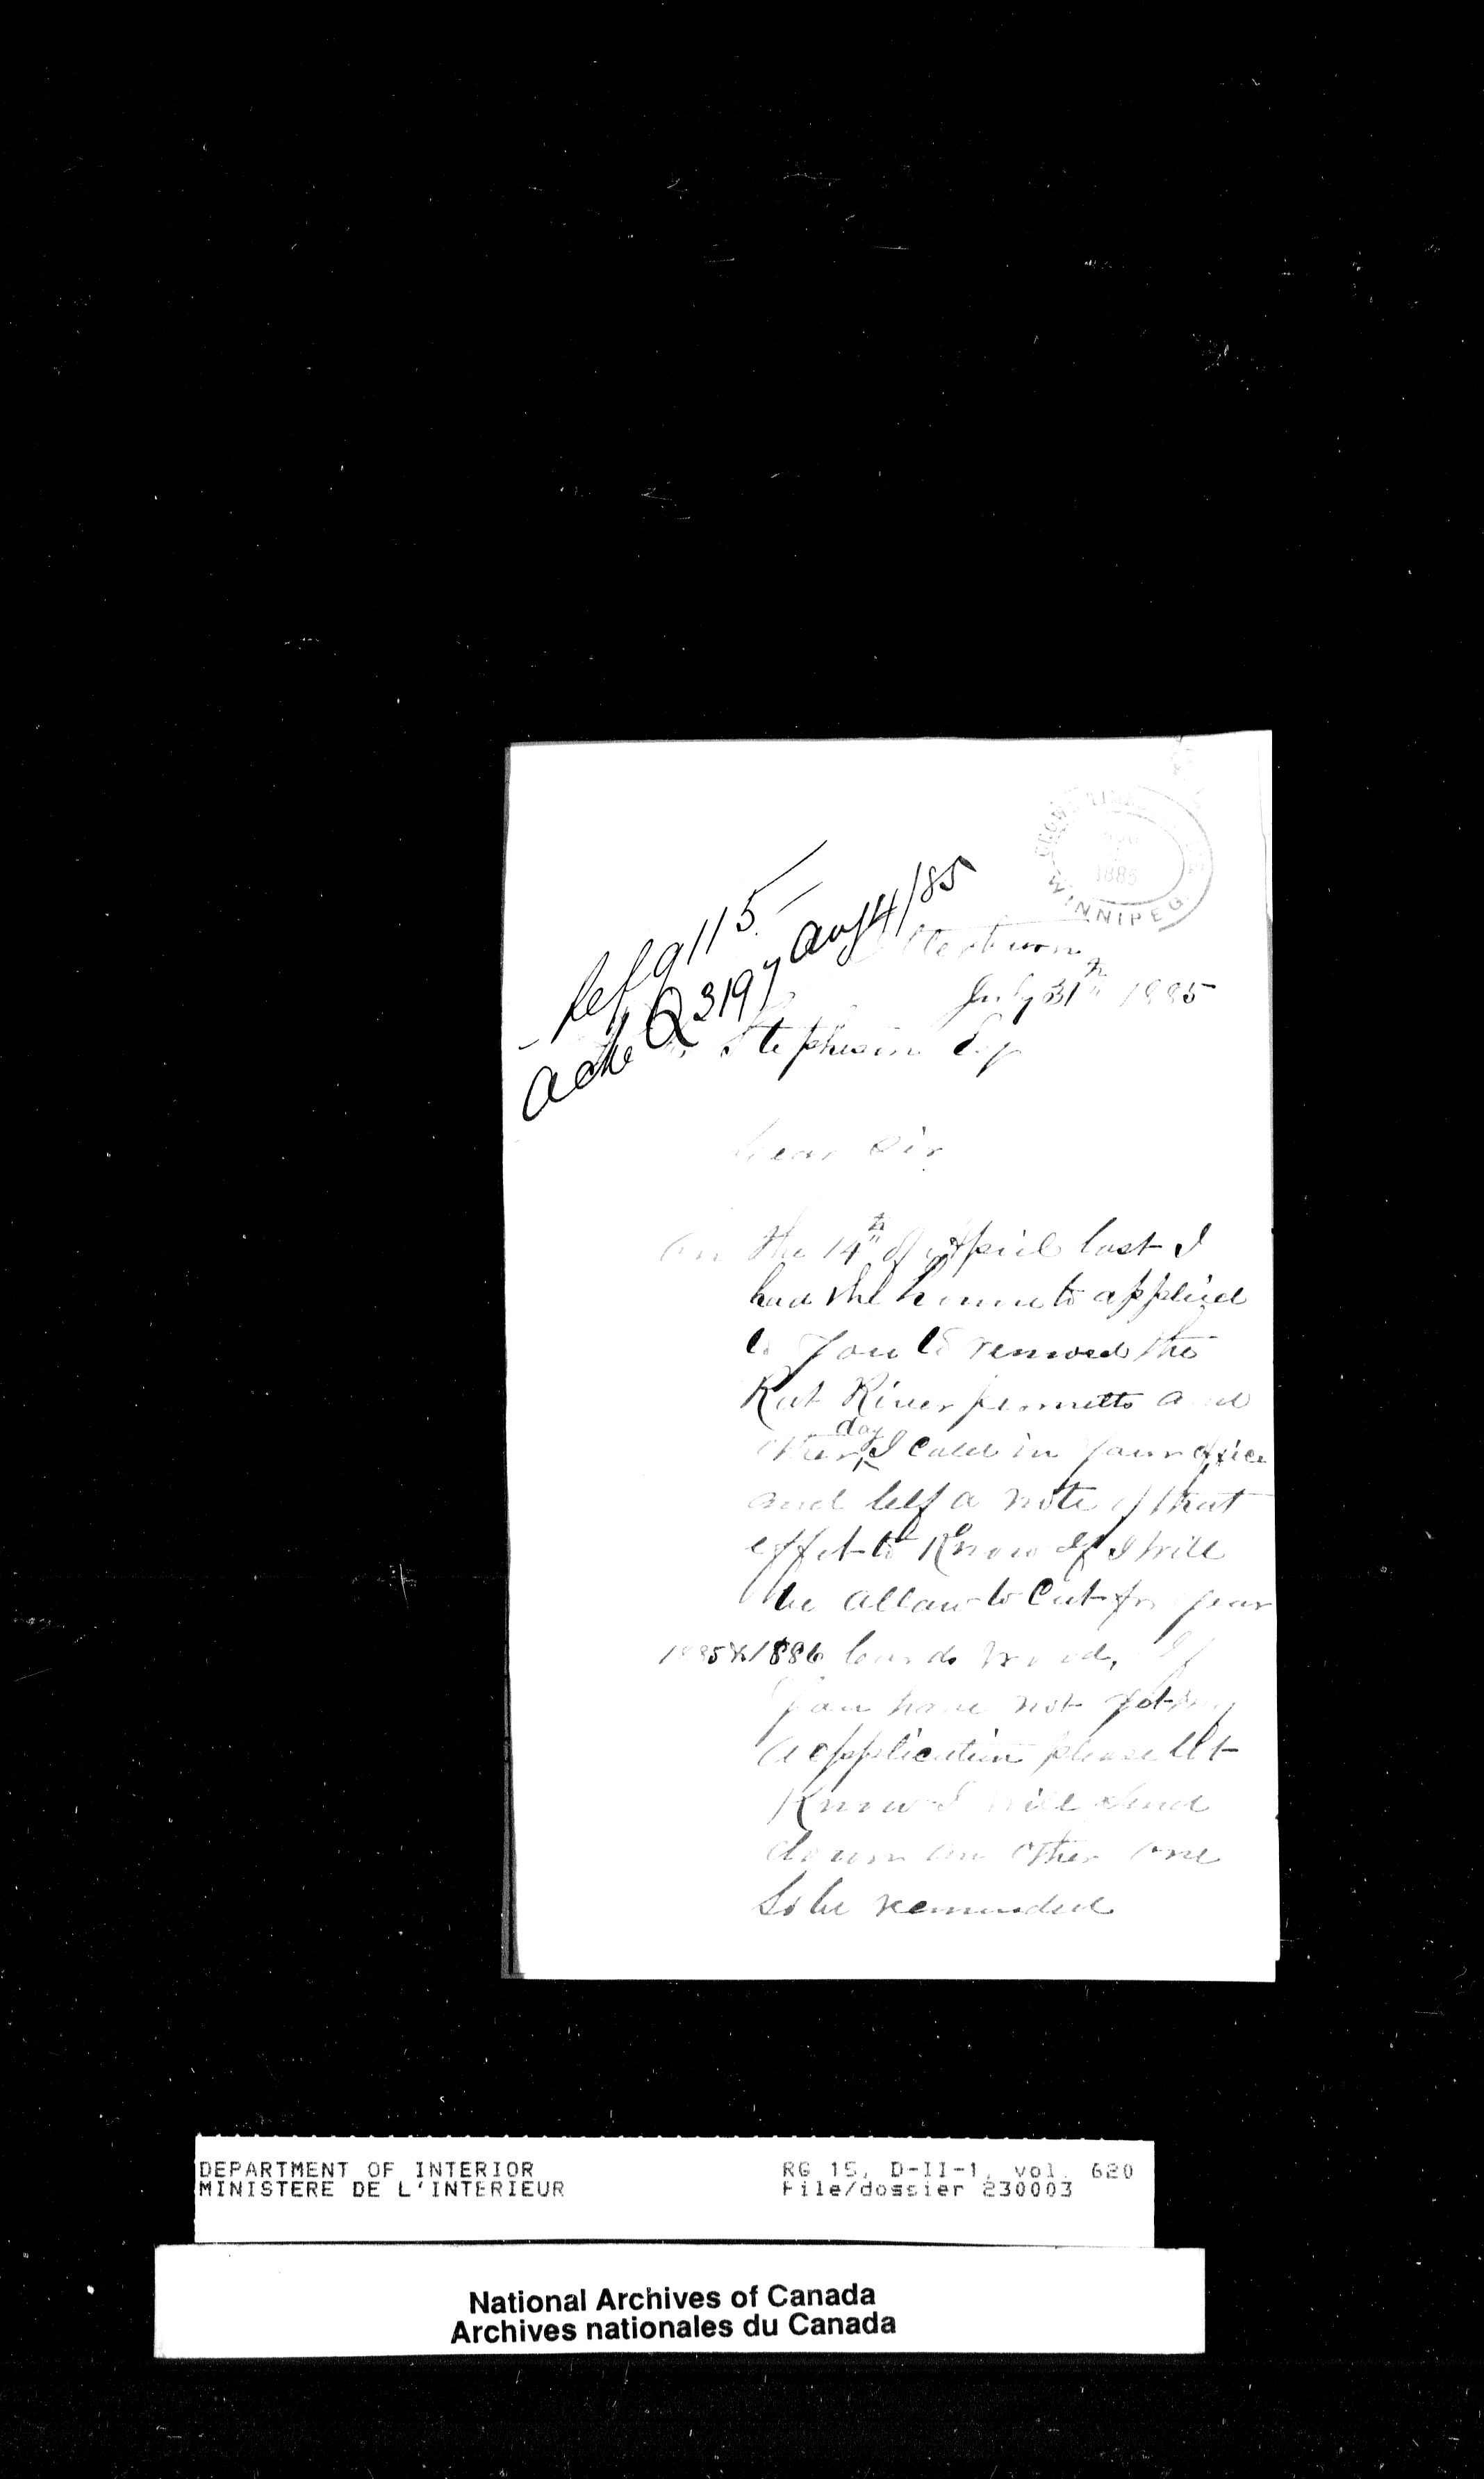 CROWN TIMBER
AUG
1885
WINNIPEG
Ref 9115
Ack Q 3197 Aug 4/85
Otterburn
July 31th 1885
Stephenson Esq
Dear Sir
On the 14th of April last I
had the honnu to applied
to you to renewed the
Rat River permitts and
other day I Caled in your ofice
and left a note of that
effet to Know if I will
be allow to Cut for year
1885 & 1886 Cords wood, If
you have not got my
application please let
Know I will send
down an other one
to be reminded
DEPARTMENT OF INTERIOR
MINISTERE DE L'INTERIEUR
RG 15, D-II-1, vol. 620
File/dossier 230003
National Archives of Canada
Archives nationales du Canada